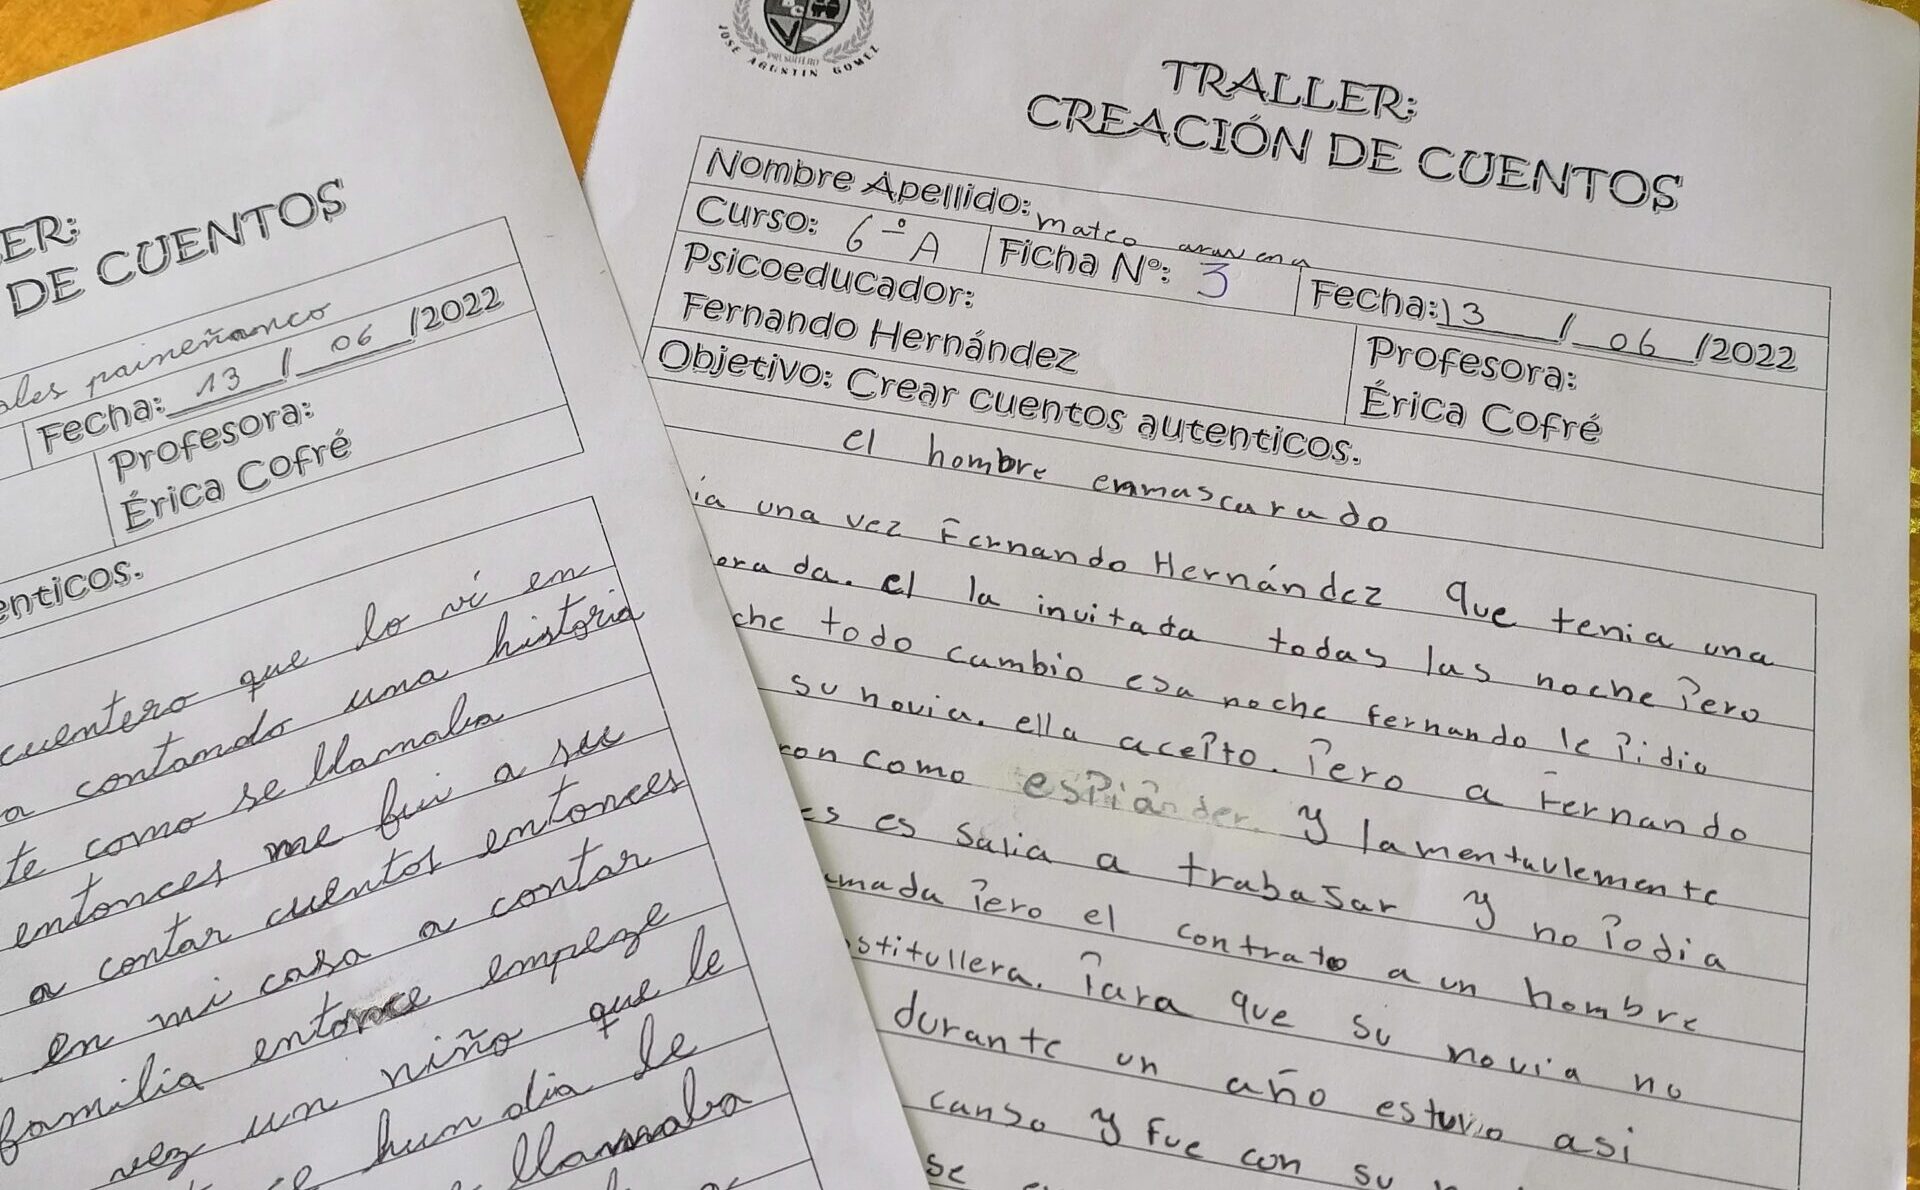 JOSE AGUSTIN GOMEZ
ER:
DE CUENTOS
ales paineñanco
Fecha: 13 / 06 /2022
Profesora:
Érica Cofré
enticos.
cuentero que lo ví en
a contando una historia
te como se llamaba
entonces me fui a su
a contar cuentos entonces
en mi casa a contar
familia entonce empeze
vez un niño que le
hun dia le
llamaba
TRALLER:
CREACIÓN DE CUENTOS
Nombre Apellido: mateo aravena
Curso: 6º A Ficha Nº: 3 Fecha: 13 / 06 /2022
Psicoeducador:
Fernando Hernández
Profesora:
Érica Cofré
Objetivo: Crear cuentos autenticos.
el hombre enmascarado
ia una vez Fernando Hernández que tenia una
orada. el la invitada todas las noche pero
che todo cambio esa noche fernando le pidio
su novia. ella acepto. pero a Fernando
ron como espiander. y lamentavlemente
es es salia a trabasar y no podia
amada pero el contrato a un hombre
stitullera. para que su novia no
durante un año estuvo asi
canso y fue con su
se